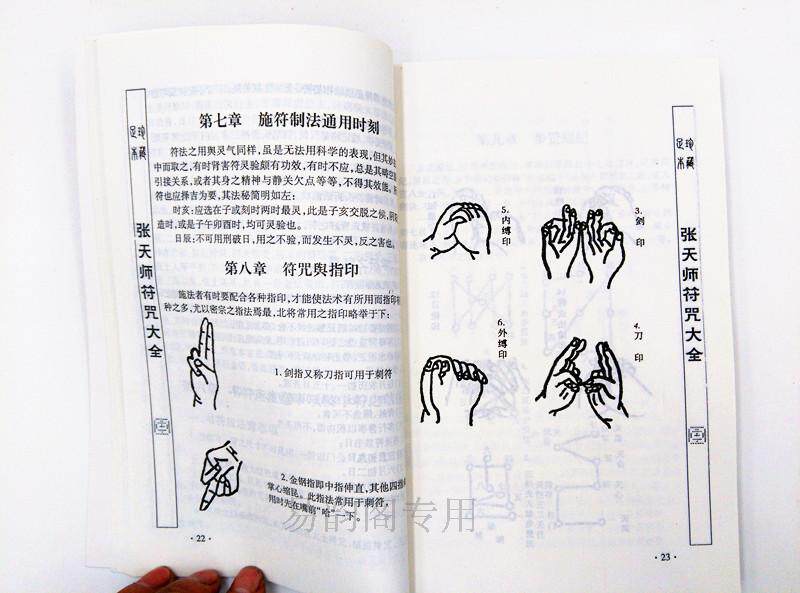 足珍
本藏
张天师符咒大全
第七章 施符制法通用时刻
符法之用舆灵气同样,虽是无法用科学的表现,但其妙在
中而取之,有时肾害符灵验颇有功效,有时不应,总是其畴
引接关系,或者其身之精神与静关欠点等等,不得其效能,
符也应择吉为要,其法秘简明如左:
时亥:应选在子或刻时两时最灵,此是子亥交脱之候,
造时,或是子午卯酉时,均可灵验也。
日辰:不可用刑破日,用之不验,而发生不灵,反之害也。
第八章 符咒舆指印
施法者有时要配合各种指印,才能使法术有所用而指印有
种之多,尤以密宗之指法焉最,北将常用之指印略举于下:
1.剑指又称刀指可用于刺符
2.金钢指即中指伸直,其他四指
掌心缩昆。此指法常用于刺符,
用时先在嘴前“哈”一下.
·22·
足珍
本藏
张天师符咒大全
3.剑印
4.刀印
5.内缚印
6.外缚印
·23·
易韵阁专用